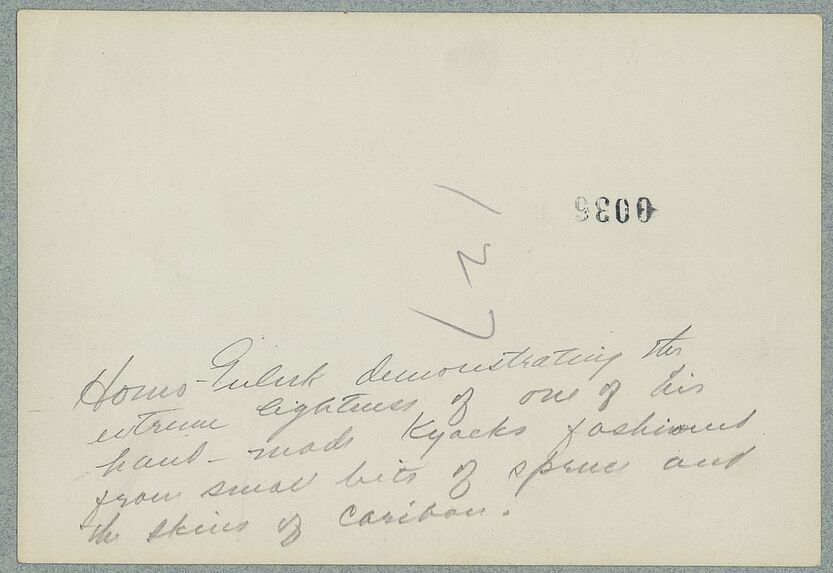 0036
127
demonstrating the
extreme lightness of one of his
hand-made Kyacks fashioned
from small bits of spruce and
the skins of Caribou.